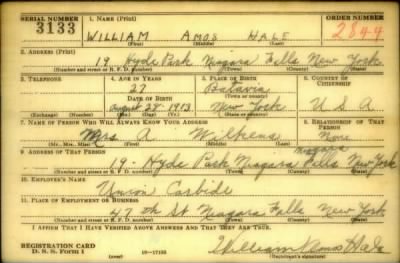 SERIAL NUMBER 1. NAME (Print) ORDER NUMBER
3133 WILLIAM AMOS HALE 2844
(First) (Middle) (Last)
2. ADDRESS (Print)
19 Hyde Park Niagara Falls New York
(Number and street or R. F. D. number) (Town) (County) (State)
3. TELEPHONE 4. AGE IN YEARS 5. PLACE OF BIRTH 6. COUNTRY OF CITIZENSHIP
27 Batavia
DATE OF BIRTH (Town or county)
August 29 1913 New York U S A
(Exchange) (No.) (Mo.) (Day) (Yr.) (State or country)
7. NAME OF PERSON WHO WILL ALWAYS KNOW YOUR ADDRESS 8. RELATIONSHIP OF THAT PERSON
Mrs A Wilkens None
(Mr., Mrs., Miss) (First) (Middle) (Last)
9. ADDRESS OF THAT PERSON Niagara
19 - Hyde Park Niagara Falls New York
(Number and street or R. F. D. number) (Town) (County) (State)
10. EMPLOYER'S NAME
Union Carbide
11. PLACE OF EMPLOYMENT OR BUSINESS
47 th St Niagara Falls New York
(Number and street or R. F. D. number) (Town) (County) (State)
I AFFIRM THAT I HAVE VERIFIED ABOVE ANSWERS AND THAT THEY ARE TRUE.
REGISTRATION CARD
D. S. S. Form 1 (over) 16-17105 William Amos Hale
(Registrant's signature)